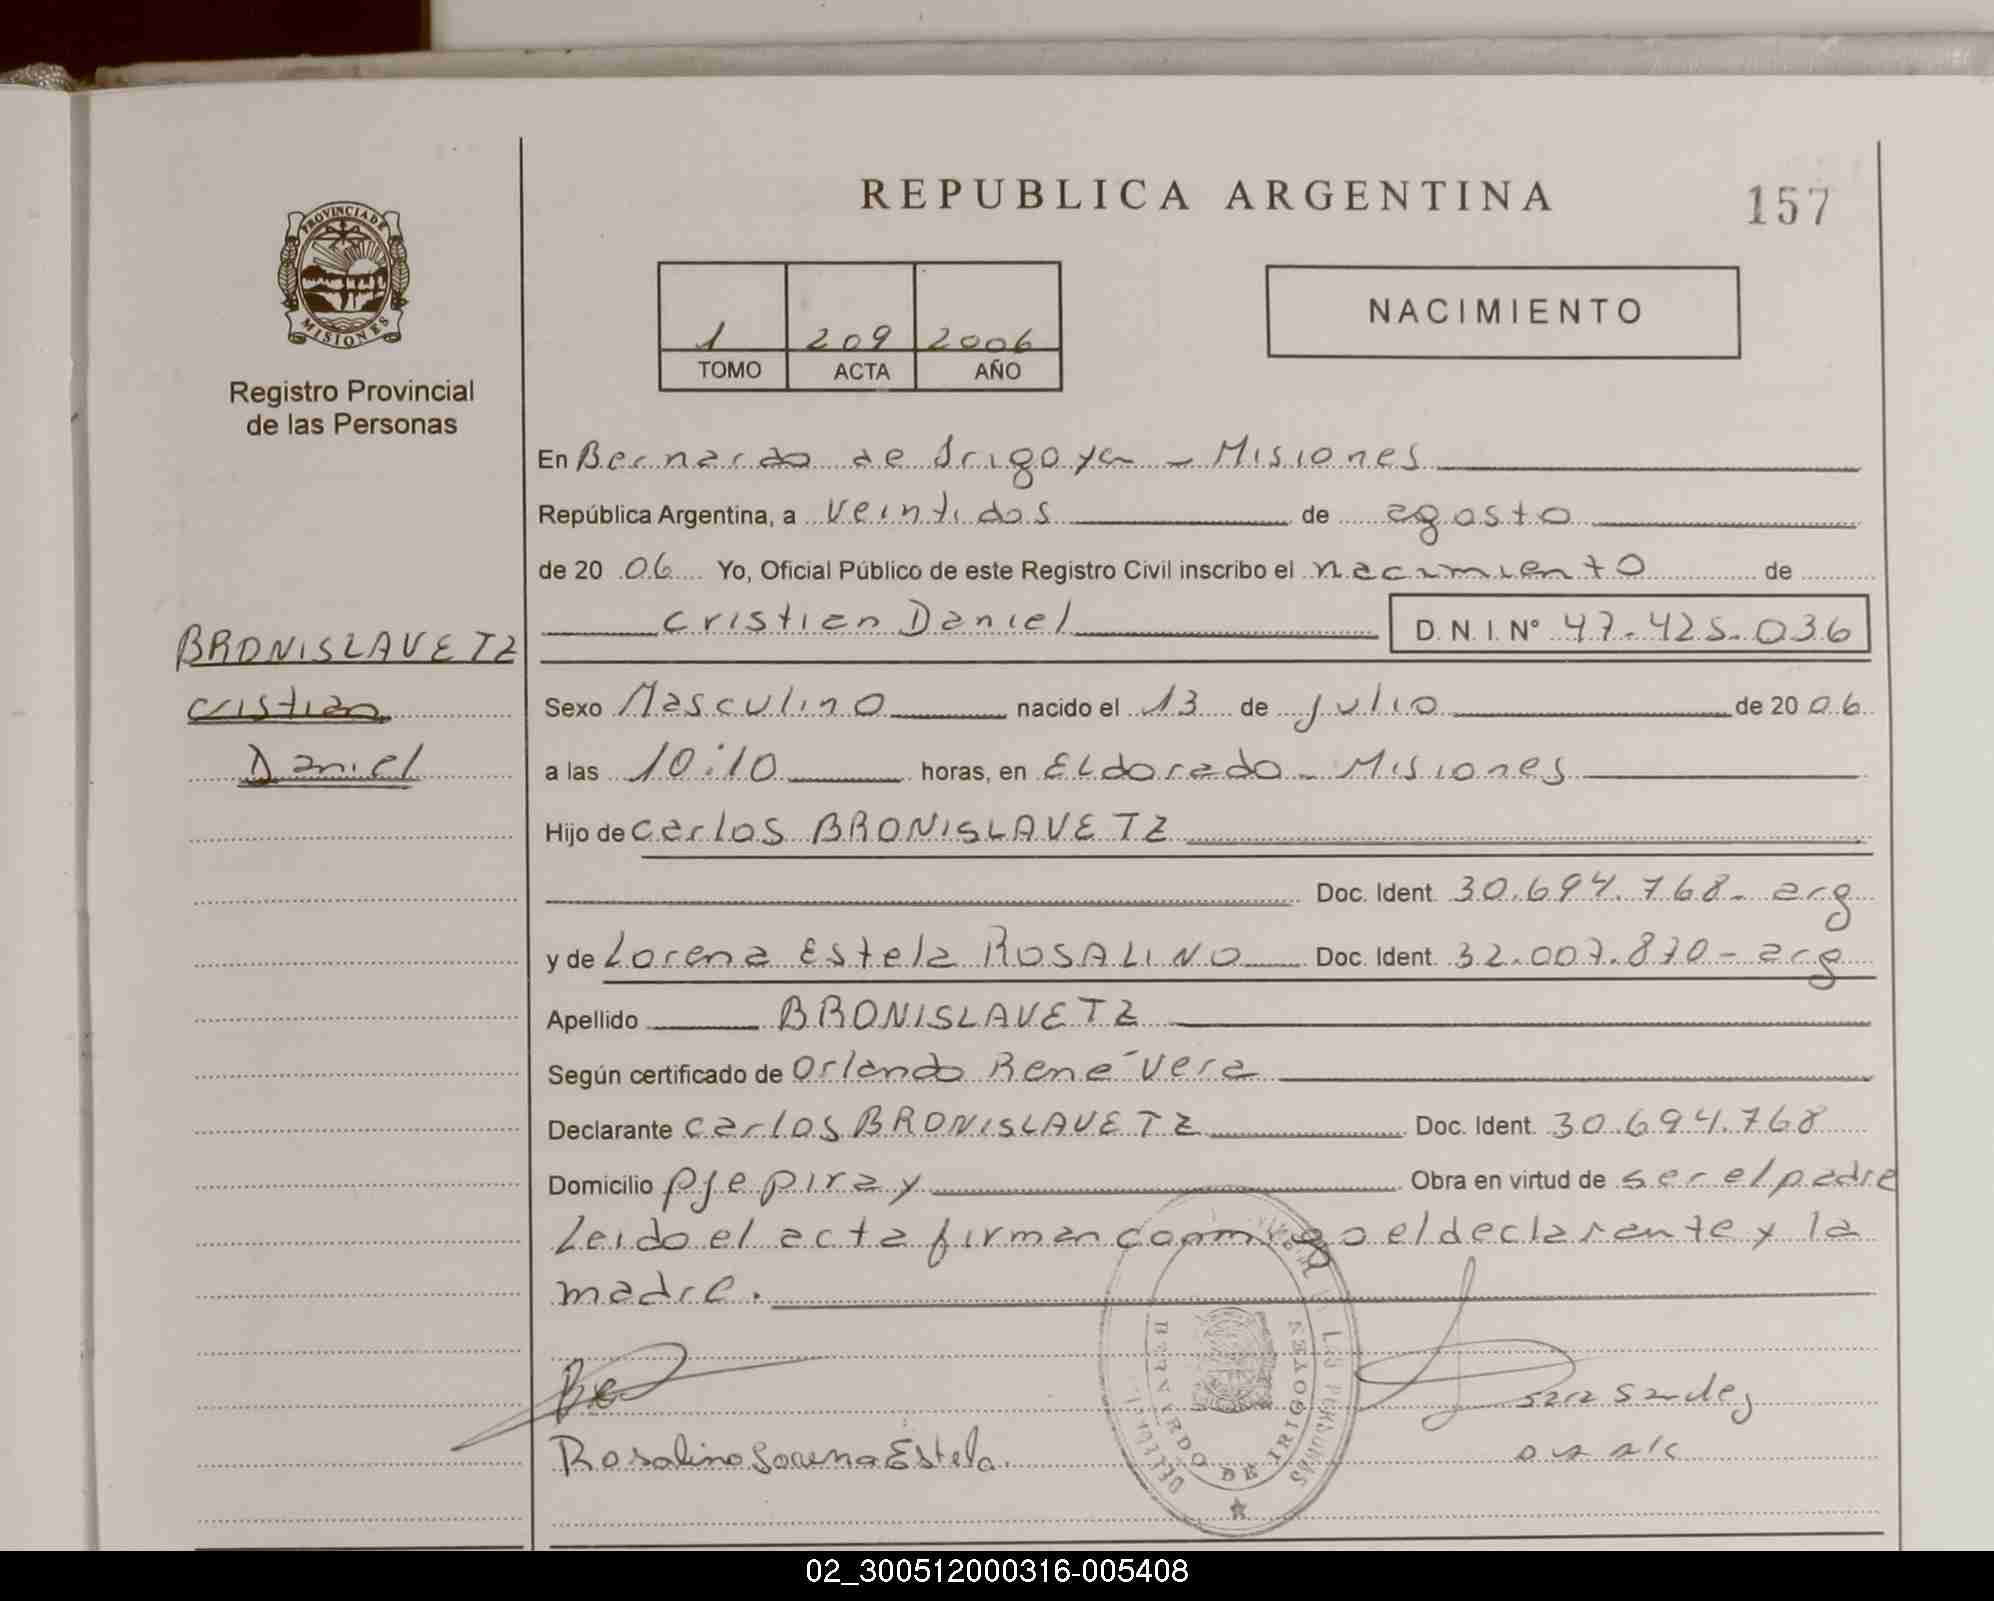 REPUBLICA ARGENTINA
157
PROVINCIA DE
MISIONES
Registro Provincial
de las Personas
1 209 2006
TOMO ACTA AÑO
NACIMIENTO
En Bernardo de Irigoyen - Misiones
República Argentina, a veintidos de agosto
de 20 06 Yo, Oficial Público de este Registro Civil inscribo el nacimiento de
Cristian Daniel D.N.I. Nº 47.425.036
BRONISLAVETZ
Cristian
Daniel
Sexo Masculino nacido el 13 de julio de 20 06
a las 10:10 horas, en Eldorado - Misiones
Hijo de Carlos BRONISLAVETZ
Doc. Ident. 30.694.768- arg
y de Lorena Estela ROSALINO Doc. Ident. 32.007.870- arg
Apellido BRONISLAVETZ
Según certificado de Orlando René Vera
Declarante Carlos BRONISLAVETZ Doc. Ident. 30.694.768
Domicilio Pje piray Obra en virtud de ser el padre
Leido el acta firman conmigo el declarante y la
madre.
Rosalino Lorena Estela.
DE LAS PERSONAS
BERNARDO DE IRIGOYEN
02_300512000316-005408